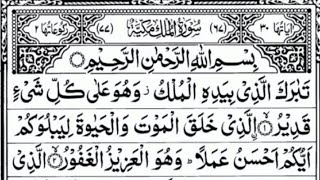 اٰیَاتُہَا ٣٠ (٦٧) سُوْرَةُ الْمُلْكِ مَكِّيَّةٌ (٧٧) رُكُوْعَاتُهَا ٢
بِسْمِ اللهِ الرَّحْمٰنِ الرَّحِيْمِ
تَبٰرَكَ الَّذِيْ بِيَدِهِ الْمُلْكُ ز وَهُوَ عَلٰى كُلِّ شَيْءٍ
قَدِيْرُ ۝١ اۨلَّذِيْ خَلَقَ الْمَوْتَ وَالْحَيٰوةَ لِيَبْلُوَكُمْ
اَيُّكُمْ اَحْسَنُ عَمَلًا ؕ وَهُوَ الْعَزِيْزُ الْغَفُوْرُ ۝٢ الَّذِيْ